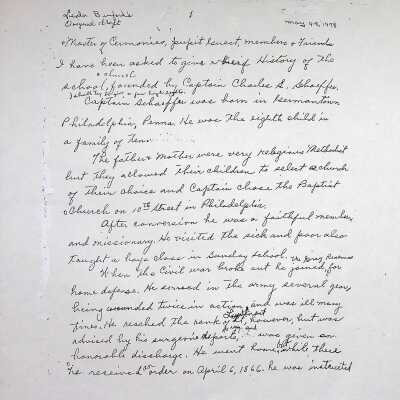 Original Draft
1
May 4-5, 1978
Master of Ceremonies, pulpit guest, members & Friends
I have been asked to give a brief History of the
& church
school, founded by Captain Charles S. Schaeffer.
Captain Schaeffer was born in Germantown
Philadelphia, Penna. He was the eighth child in
a family of Ten.
The father & Mother were very religious Methodist
but they allowed their children to select a church
of their choice and Captain chose the Baptist
Church on 10th Street in Philadelphia.
After conversion he was a faithful member,
and missionary. He visited the sick and poor also
taught a boys class in Sunday School.
When the Civil War broke out he joined, for
home defense. He served in the army several years
being wounded twice in action, and was ill many
times. He reached the rank of, however, but was
advised by his surgeon's reports, was given an
honorable discharge. He went home, while there
he received an order on April 6, 1866. he was instructed